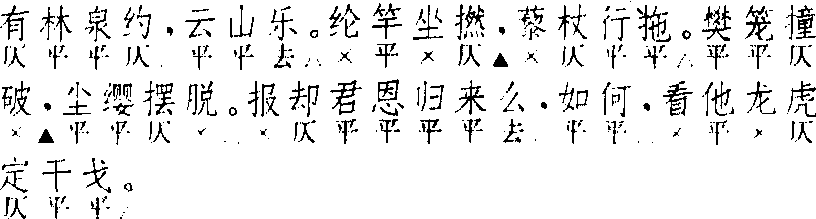 有林泉约，云山乐。纶竿坐撚，藜杖行拖。樊笼撞
仄平平仄 平平去△×平×仄▲×仄平平△平平仄
破，尘缨摆脱。报却君恩归来么，如何，看他龙虎
×▲平平仄× ×仄平平平平去 平平 ×平×仄
定干戈。
仄平平△